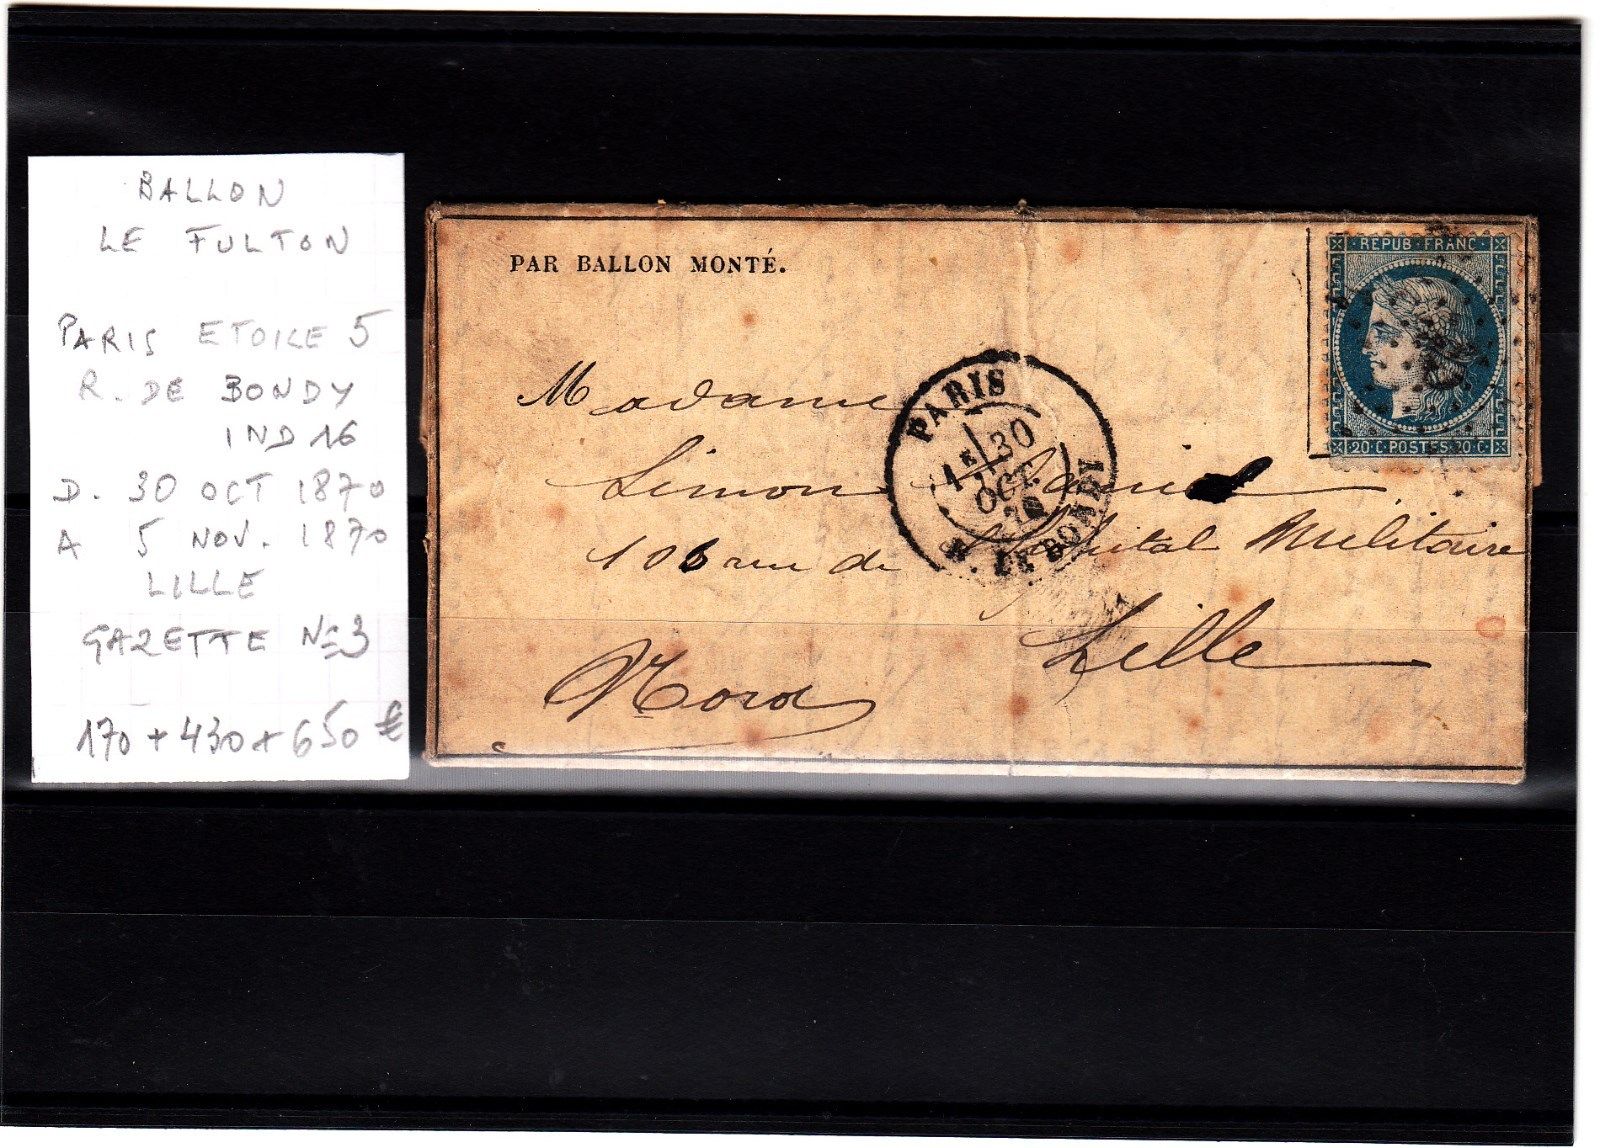 BALLON
LE FULTON
PARIS ETOILE 5
R. DE BONDY
IND 16
D. 30 OCT 1870
A 5 NOV. 1870
LILLE
GAZETTE N=3
170 + 430 + 650 €
PAR BALLON MONTÉ.
REPUB·FRANC·
20·C·POSTES·20·C·
PARIS
1E 30
OCT.
70
R. DE BONDY
Madame
Simon
106 rue de l'hopital Militaire
Lille
Nord